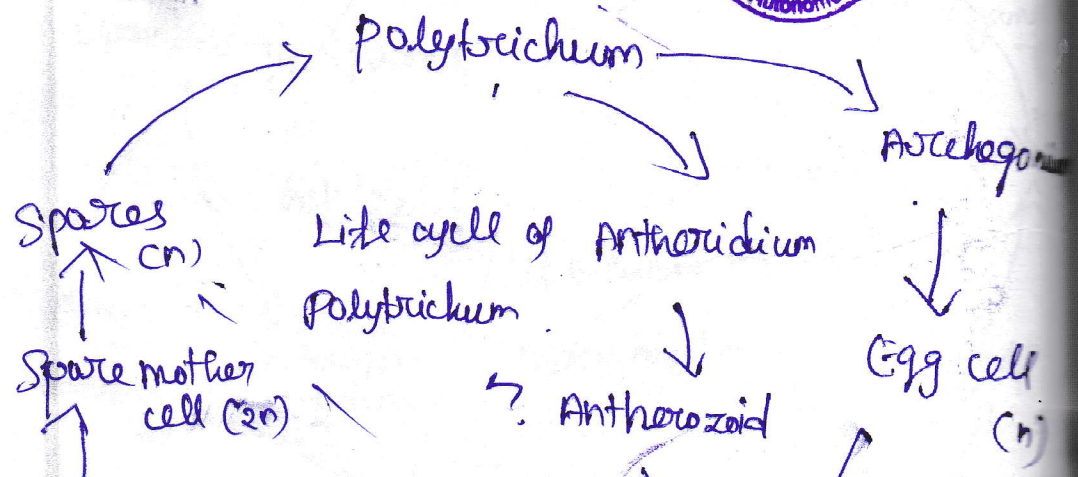 Autonomo
Polytrichum
Archegonium
Spores
(n)
Life cycle of
Polytrichum
Antheridium
Spore mother
cell (2n)
? Antherozoid
Egg cell
(n)